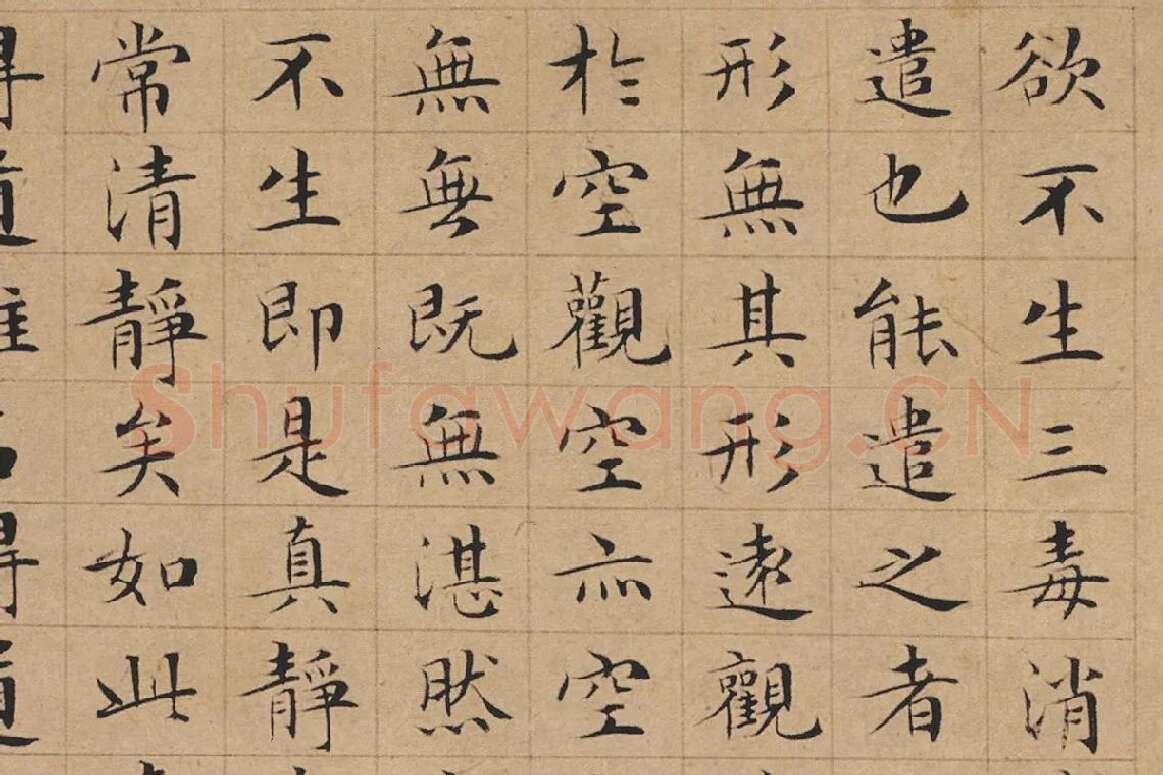 欲不生三毒消
遣也能遣之者
形無其形遠觀
於空觀空亦空
無無既無湛然
不生即是真靜
常清靜矣如此
Shufawang.CN